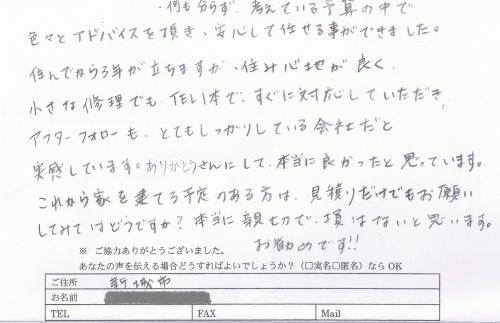 ・何も分らず、考えている予算の中で
色々とアドバイスを頂き、安心して任せる事ができました。
住んでから3年が立ちますが、住み心地が良く、
小さな修理でも、TEL1本で、すぐに対応していただき、
アフターフォローも、とてもしっかりしている会社だと
実感しています。ありがとうさんにして、本当に良かったと思っています。
これから家を建てる予定のある方は、見積りだけでもお願い
してみてはどうですか?本当に親切で、損はないと思います。
お勧めです!!
※ ご協力ありがとうございました。
あなたの声を伝える場合どうすればよいでしょうか?(□実名□匿名)ならOK
ご住所 新城市
お名前
TEL FAX Mail